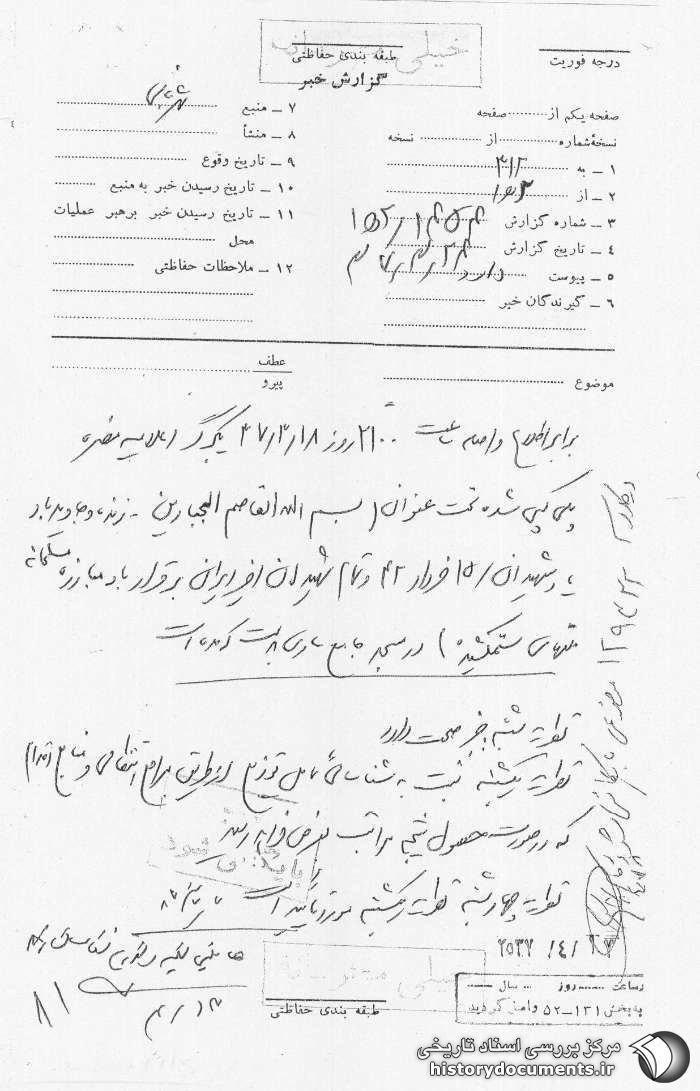 خیلی محرمانه
طبقه بندی حفاظتی
گزارش خبر
درجه فوریت
صفحه یکم از صفحه
نسخهٔ شماره از نسخه
۱ ـ به ۳۱۲
۲ ـ از
۳ ـ شماره گزارش
۴ ـ تاریخ گزارش
۵ ـ پیوست ندارد
۶ ـ گیرندگان خبر
۷ ـ منبع
۸ ـ منشأ
۹ ـ تاریخ وقوع
۱۰ ـ تاریخ رسیدن خبر به منبع
۱۱ ـ تاریخ رسیدن خبر برهبر عملیات
محل
۱۲ ـ ملاحظات حفاظتی
عطف
پیرو
موضوع
برابر اطلاع واصله ساعت ۲۱۰۰ روز ۳۷/۳/۱۸ یکبرگ اعلامیه مضره
پلی کپی شده تحت عنوان (بسم اله القاصم الجبارین - زنده و جاوید باد
یاد شهیدان ۱۵ خرداد ۴۲ و تمام شهیدان اخیر ایران برقرار باد مبارزه مسلمانه
ملتهای ستمکشیده) در مسجد جامع ساری بدست آمده است
نظریه شنبه خبر صحت دارد
نظریه یکشنبه نسبت به شناسائی عامل توزیع از طریق مراجع انتظامی و منابع اقدام
که در صورت حصول نتیجه مراتب بعرض خواهد رسید
نظریه چهارشنبه نظریه یکشنبه مورد تأیید است
بایگانی شود
خیلی محرمانه
طبقه بندی حفاظتی
ساعت روز سال
به بخش ۱۳۱ـ۵۲ واصل گردید
۸۱
مرکز بررسی اسناد تاریخی
historydocuments.ir